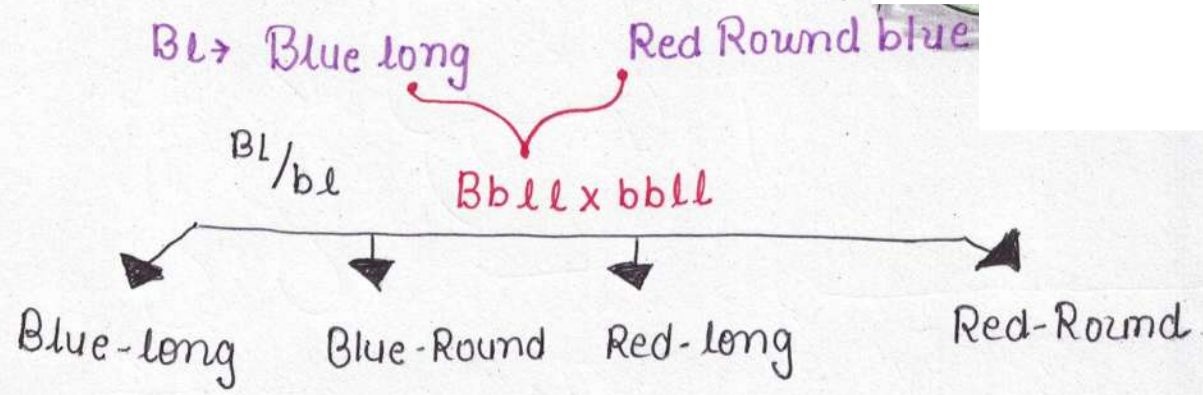 Bl→ Blue long Red Round blue
BL/bl
Bbll x bbll
Blue-long Blue-Round Red-long Red-Round